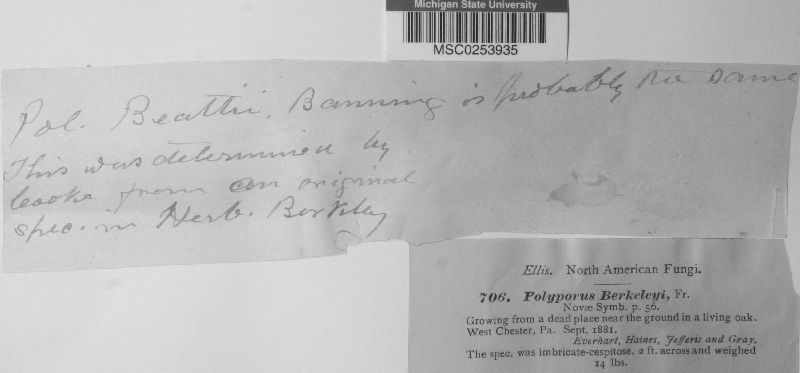 Michigan State University
MSC0253935
Pol. Beattii, Banning is probably the same
This was determined by
Cooke from an original
spec. in Herb. Berkley
Ellis. North American Fungi.
706. Polyporus Berkeleyi, Fr.
Novæ Symb. p. 56.
Growing from a dead place near the ground in a living oak.
West Chester, Pa. Sept. 1881.
Everhart, Haines, Jefferis and Gray.
The spec. was imbricate-cespitose, 2 ft. across and weighed
14 lbs.